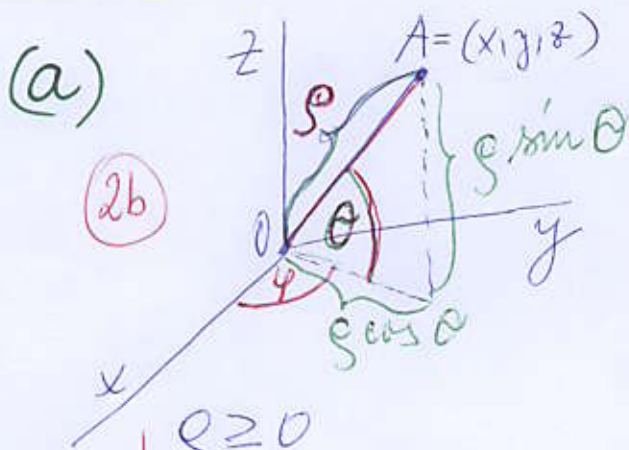 (a)
2b
z
A=(x,y,z)
ρ
ρ sin θ
0
θ
y
φ
ρ cos θ
x
ρ≥0